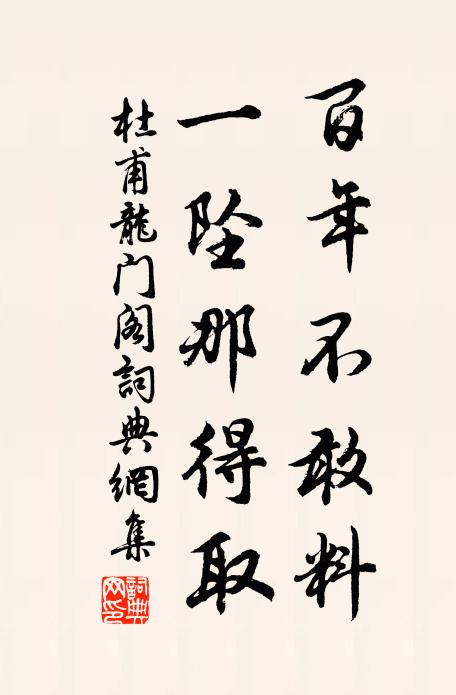 百年不敢料
一坠那得取
杜甫龍门阁詞典網集
詞典网印